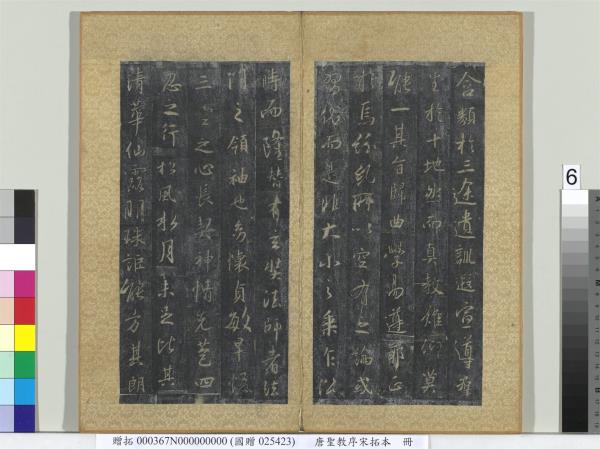 含類於三途遺訓遐宣導群
生於十地然而真教難仰莫
能一其旨歸曲學易遵耶正
於焉紛糺所以空有之論或
習俗而是非大小之乘乍沿
時而隆替有玄奘法師者法
門之領袖也幼懷貞敏早悟
三空之心長契神情先苞四
忍之行松風水月未足比其
清華仙露明珠詎能方其朗
6
贈拓 000367N000000000 (國贈 025423) 唐聖教序宋拓本 冊